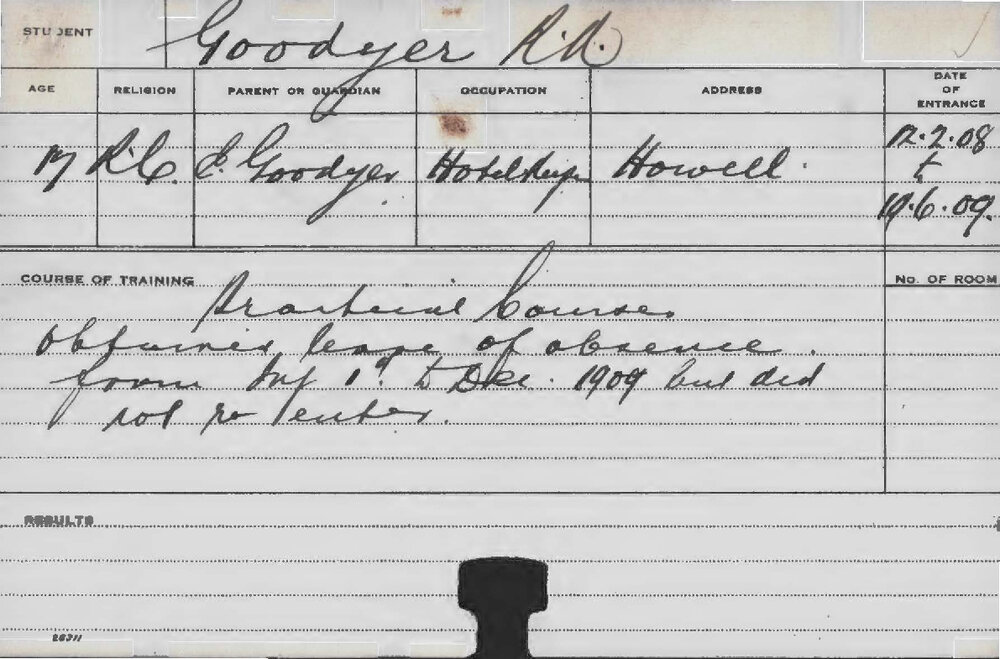 STUDENT Goodyer R.R.
AGE RELIGION PARENT OR GUARDIAN OCCUPATION ADDRESS DATE OF ENTRANCE
17 R.C. E. Goodyer Hotelkeeper Howell. 12.2.08
to
19.6.09.
COURSE OF TRAINING No. OF ROOM
Practical Courses
obtained leave of absence
from July 1st to Dec. 1909 but did
not re enter.
RESULTS